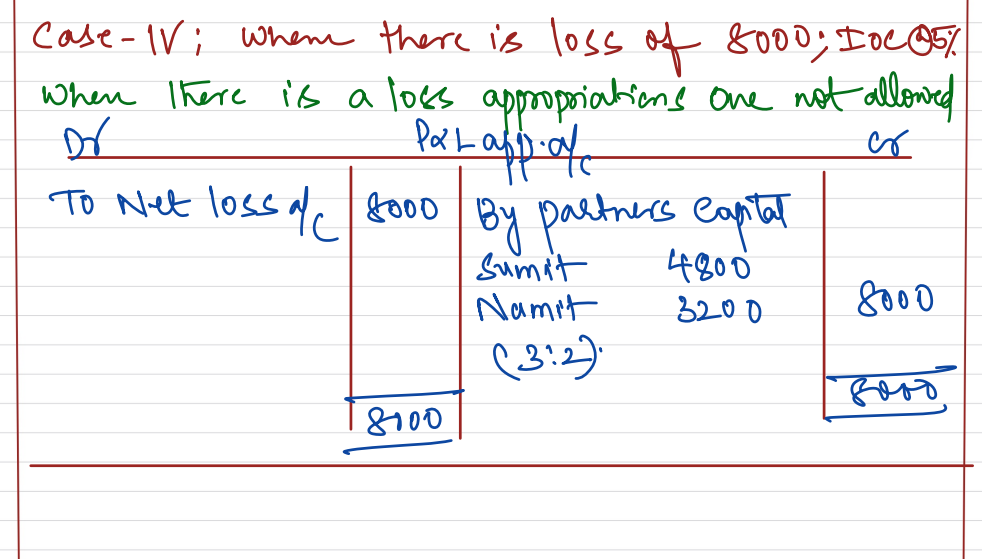 Case-IV; When there is loss of 8000; IOC @5%
When there is a loss appropriations are not allowed
Dr P&L app. a/c Cr
To Net loss a/c 8000 By partners Capital
Sumit 4800
Namit 3200 8000
(3:2)
8000
8000